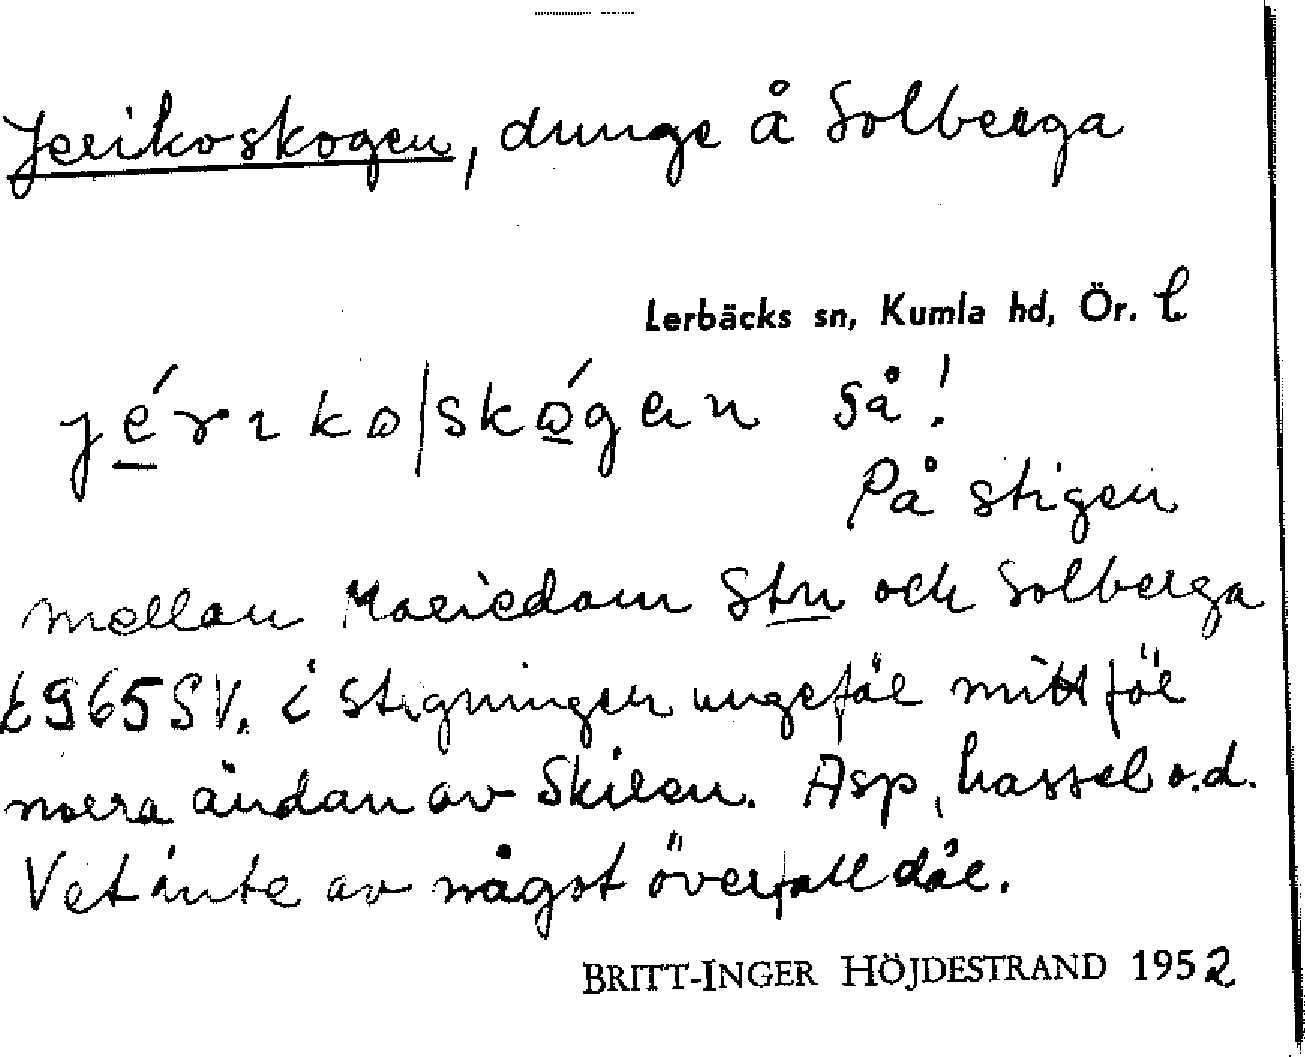 Jerikoskogen, dunge å Solberga
Lerbäcks sn, Kumla hd, Ör. l
jérıko/skógen så!
På stigen
mellan Mariedam Stn och Solberga
t965SV. i stigningen ungefär mitt för
norra ändan av Skiren. Asp, hassel o.d.
Vet inte av något överfall där.
BRITT-INGER HÖJDESTRAND 1952